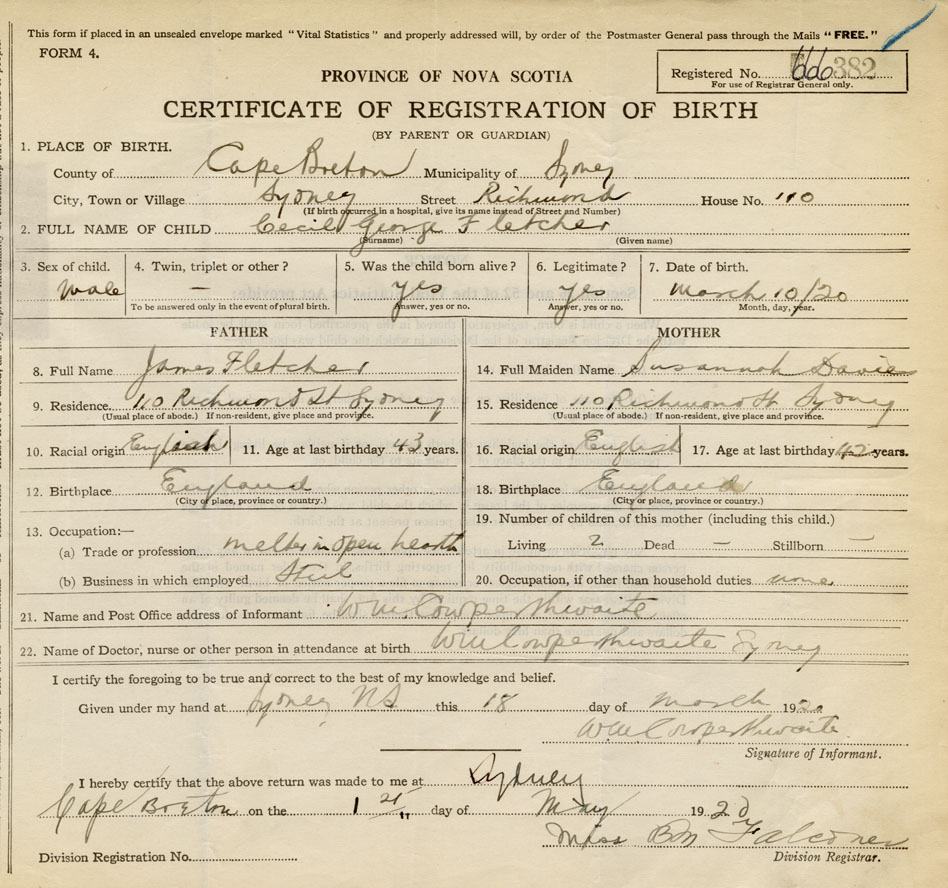 This form if placed in an unsealed envelope marked "Vital Statistics" and properly addressed will, by order of the Postmaster General pass through the Mails "FREE."
FORM 4.
PROVINCE OF NOVA SCOTIA
Registered No. 666382
For use of Registrar General only.
CERTIFICATE OF REGISTRATION OF BIRTH
(BY PARENT OR GUARDIAN)
1. PLACE OF BIRTH.
County of Cape Breton Municipality of Sydney
City, Town or Village Sydney Street Richmond House No. 110
(If birth occurred in a hospital, give its name instead of Street and Number)
2. FULL NAME OF CHILD Cecil George Fletcher
(Surname) (Given name)
3. Sex of child. 4. Twin, triplet or other? 5. Was the child born alive? 6. Legitimate? 7. Date of birth.
Male — yes yes March 10/20
To be answered only in the event of plural birth. Answer, yes or no. Answer, yes or no. Month, day, year.
FATHER MOTHER
8. Full Name James Fletcher 14. Full Maiden Name Susannah Davies
9. Residence 110 Richmond St Sydney 15. Residence 110 Richmond St Sydney
(Usual place of abode.) If non-resident, give place and province. (Usual place of abode.) If non-resident, give place and province.
10. Racial origin English 11. Age at last birthday 43 years. 16. Racial origin English 17. Age at last birthday 42 years.
12. Birthplace England 18. Birthplace England
(City or place, province or country.) (City or place, province or country.)
13. Occupation:— 19. Number of children of this mother (including this child.)
(a) Trade or profession melter in open hearth Living 2 Dead — Stillborn —
(b) Business in which employed Steel 20. Occupation, if other than household duties none
21. Name and Post Office address of Informant Wm Cowperthwaite
22. Name of Doctor, nurse or other person in attendance at birth Wm Cowperthwaite Sydney
I certify the foregoing to be true and correct to the best of my knowledge and belief.
Given under my hand at Sydney NS this 18 day of March 1920
Wm Cowperthwaite
Signature of Informant.
I hereby certify that the above return was made to me at Sydney
Cape Breton on the 1st day of May 1920
Miss B M Falconer
Division Registration No. Division Registrar.